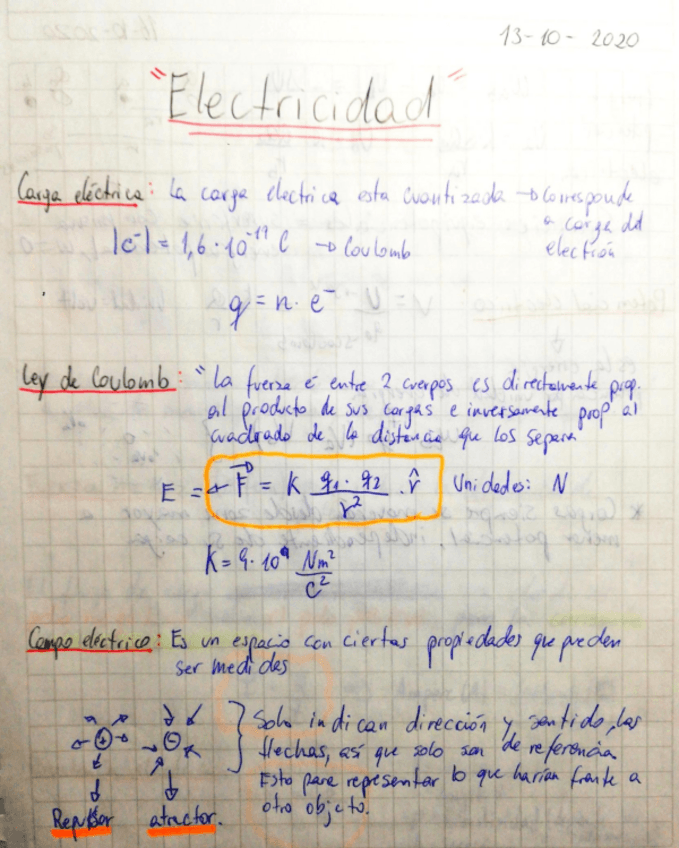 13-10-2020
"Electricidad"
Carga eléctrica: La carga electrica esta cuantizada → Corresponde
a carga del
|e⁻| = 1,6·10⁻¹⁹ C → Coulomb electrón
q = n·e⁻
Ley de Coulomb: "La fuerza e⁻ entre 2 cuerpos es directamente prop.
al producto de sus cargas e inversamente prop al
cuadrado de la distancia que los separa
E = F⃗ = K q₁·q₂/r² · r̂ Unidades: N
K = 9·10⁹ Nm²/C²
Campo eléctrico: Es un espacio con ciertas propiedades que pueden
ser medidas
Solo indican dirección y sentido, las
+ - flechas, así que solo son de referencia
Esto para representar lo que harían frente a
Repulsor atractor. otro objeto.